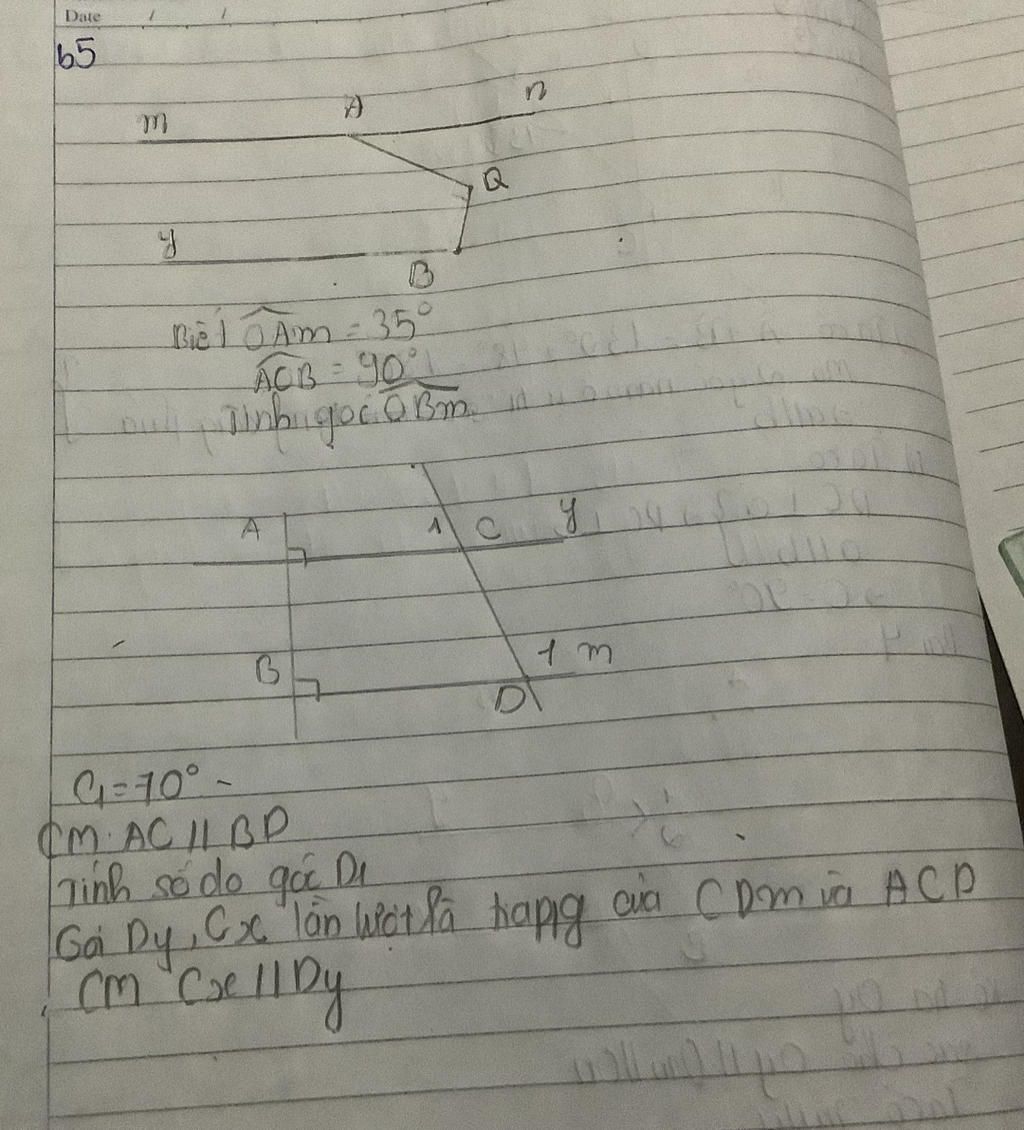 Date / /
65
m A n
Q
y B
Biết OAm = 35°
AOB = 90°
Tính góc OBm
A 1 C y
B 1 m
D
C1 = 70°
CM: AC // BD
Tính số đo góc D1
Gọi Dy, Cx lần lượt là của CDm và ACD
CM Cx // Dy